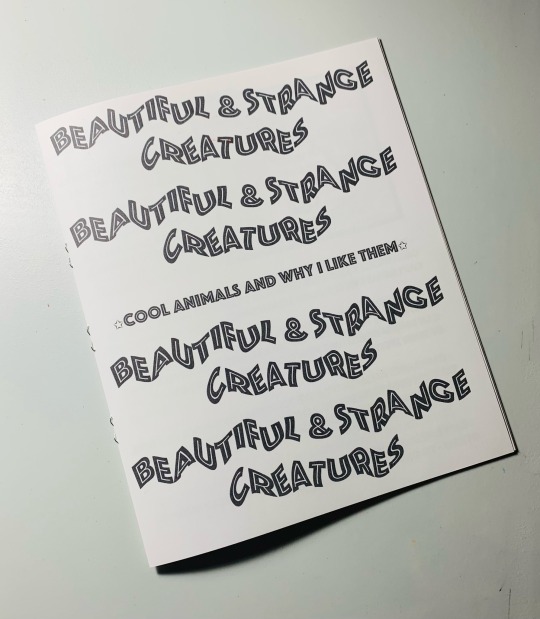 BEAUTIFUL & STRANGE
CREATURES
BEAUTIFUL & STRANGE
CREATURES
☆COOL ANIMALS AND WHY I LIKE THEM☆
BEAUTIFUL & STRANGE
CREATURES
BEAUTIFUL & STRANGE
CREATURES